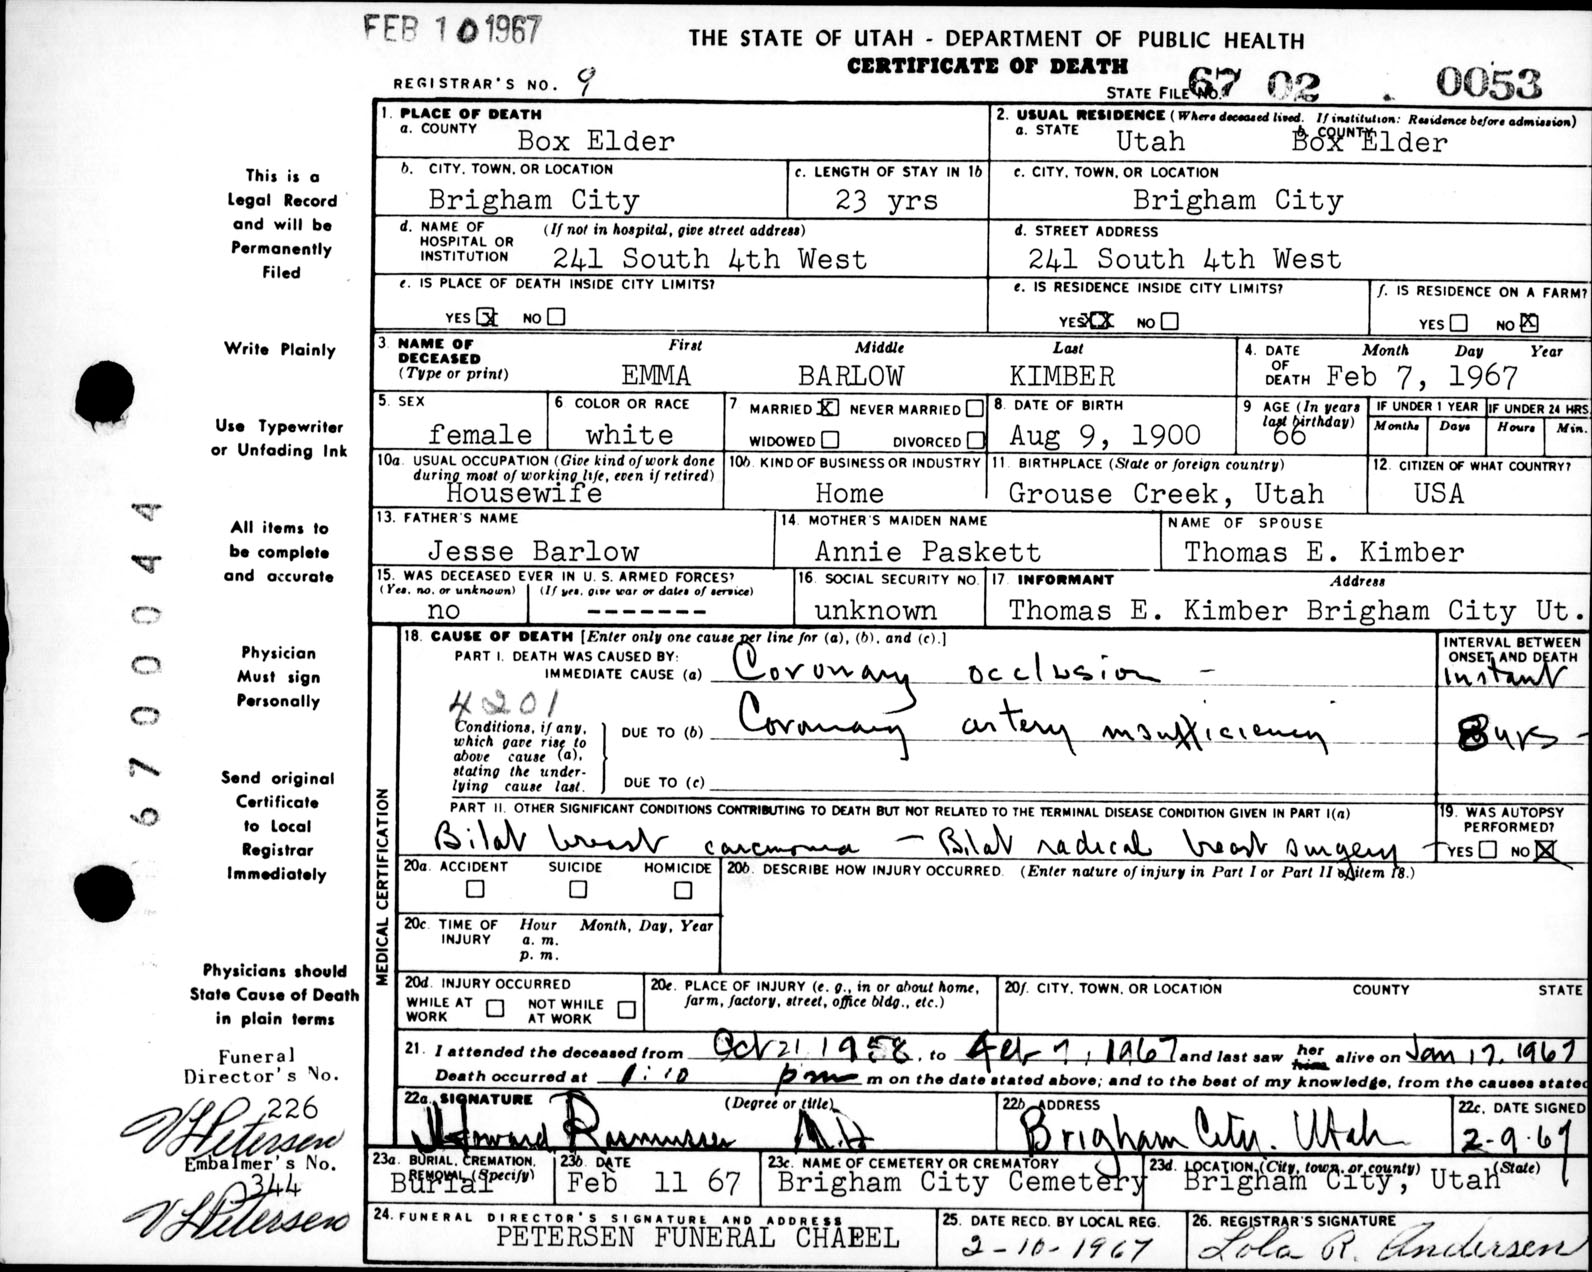 FEB 10 1967
THE STATE OF UTAH - DEPARTMENT OF PUBLIC HEALTH
CERTIFICATE OF DEATH
REGISTRAR'S NO. 9
STATE FILE NO. 67 02 . 0053
This is a
Legal Record
and will be
Permanently
Filed
Write Plainly
Use Typewriter
or Unfading Ink
All items to
be complete
and accurate
Physician
Must sign
Personally
Send original
Certificate
to Local
Registrar
Immediately
Physicians should
State Cause of Death
in plain terms
Funeral
Director's No.
226
V L Petersen
Embalmer's No.
344
V L Petersen
6790044
1. PLACE OF DEATH
a. COUNTY Box Elder
2. USUAL RESIDENCE (Where deceased lived. If institution: Residence before admission)
a. STATE Utah b. COUNTY Box Elder
b. CITY, TOWN, OR LOCATION Brigham City
c. LENGTH OF STAY IN 1b 23 yrs
c. CITY, TOWN, OR LOCATION Brigham City
d. NAME OF HOSPITAL OR INSTITUTION (If not in hospital, give street address) 241 South 4th West
d. STREET ADDRESS 241 South 4th West
e. IS PLACE OF DEATH INSIDE CITY LIMITS?
YES X NO
e. IS RESIDENCE INSIDE CITY LIMITS?
YES XX NO
f. IS RESIDENCE ON A FARM?
YES NO X
3. NAME OF DECEASED (Type or print) First Middle Last
EMMA BARLOW KIMBER
4. DATE OF DEATH Month Day Year
Feb 7, 1967
5. SEX female
6 COLOR OR RACE white
7 MARRIED X NEVER MARRIED
WIDOWED DIVORCED
8. DATE OF BIRTH Aug 9, 1900
9 AGE (In years last birthday) 66
IF UNDER 1 YEAR Months Days
IF UNDER 24 HRS Hours Min.
10a. USUAL OCCUPATION (Give kind of work done during most of working life, even if retired) Housewife
10b. KIND OF BUSINESS OR INDUSTRY Home
11. BIRTHPLACE (State or foreign country) Grouse Creek, Utah
12. CITIZEN OF WHAT COUNTRY? USA
13. FATHER'S NAME Jesse Barlow
14. MOTHER'S MAIDEN NAME Annie Paskett
NAME OF SPOUSE Thomas E. Kimber
15. WAS DECEASED EVER IN U. S. ARMED FORCES?
(Yes, no, or unknown) (If yes, give war or dates of service)
no -------
16. SOCIAL SECURITY NO. unknown
17. INFORMANT Address
Thomas E. Kimber Brigham City Ut.
MEDICAL CERTIFICATION
18. CAUSE OF DEATH [Enter only one cause per line for (a), (b), and (c).]
INTERVAL BETWEEN ONSET AND DEATH
PART I. DEATH WAS CAUSED BY:
IMMEDIATE CAUSE (a) Coronary occlusion - instant
4201
Conditions, if any, which gave rise to above cause (a), stating the underlying cause last.
DUE TO (b) Coronary artery insufficiency 8 yrs -
DUE TO (c)
PART II. OTHER SIGNIFICANT CONDITIONS CONTRIBUTING TO DEATH BUT NOT RELATED TO THE TERMINAL DISEASE CONDITION GIVEN IN PART I(a)
Bilat breast carcinoma - Bilat radical breast surgery
19. WAS AUTOPSY PERFORMED?
YES NO X
20a. ACCIDENT SUICIDE HOMICIDE
20b. DESCRIBE HOW INJURY OCCURRED. (Enter nature of injury in Part I or Part II of item 18.)
20c. TIME OF INJURY Hour Month, Day, Year
a. m.
p. m.
20d. INJURY OCCURRED
WHILE AT WORK NOT WHILE AT WORK
20e. PLACE OF INJURY (e. g., in or about home, farm, factory, street, office bldg., etc.)
20f. CITY, TOWN, OR LOCATION COUNTY STATE
21. I attended the deceased from Oct 21 1958, to Feb 7, 1967 and last saw her him alive on Jan 17, 1967
Death occurred at 1:10 pm m on the date stated above; and to the best of my knowledge, from the causes stated
22a. SIGNATURE (Degree or title)
Howard Rasmussen M.D
22b. ADDRESS Brigham City. Utah
22c. DATE SIGNED 2-9-67
23a. BURIAL, CREMATION, REMOVAL (Specify) Burial
23b. DATE Feb 11 67
23c. NAME OF CEMETERY OR CREMATORY Brigham City Cemetery
23d. LOCATION (City, town, or county) (State) Brigham City, Utah
24. FUNERAL DIRECTOR'S SIGNATURE AND ADDRESS
PETERSEN FUNERAL CHAPEL
25. DATE RECD. BY LOCAL REG. 2-10-1967
26. REGISTRAR'S SIGNATURE Lola R. Andersen